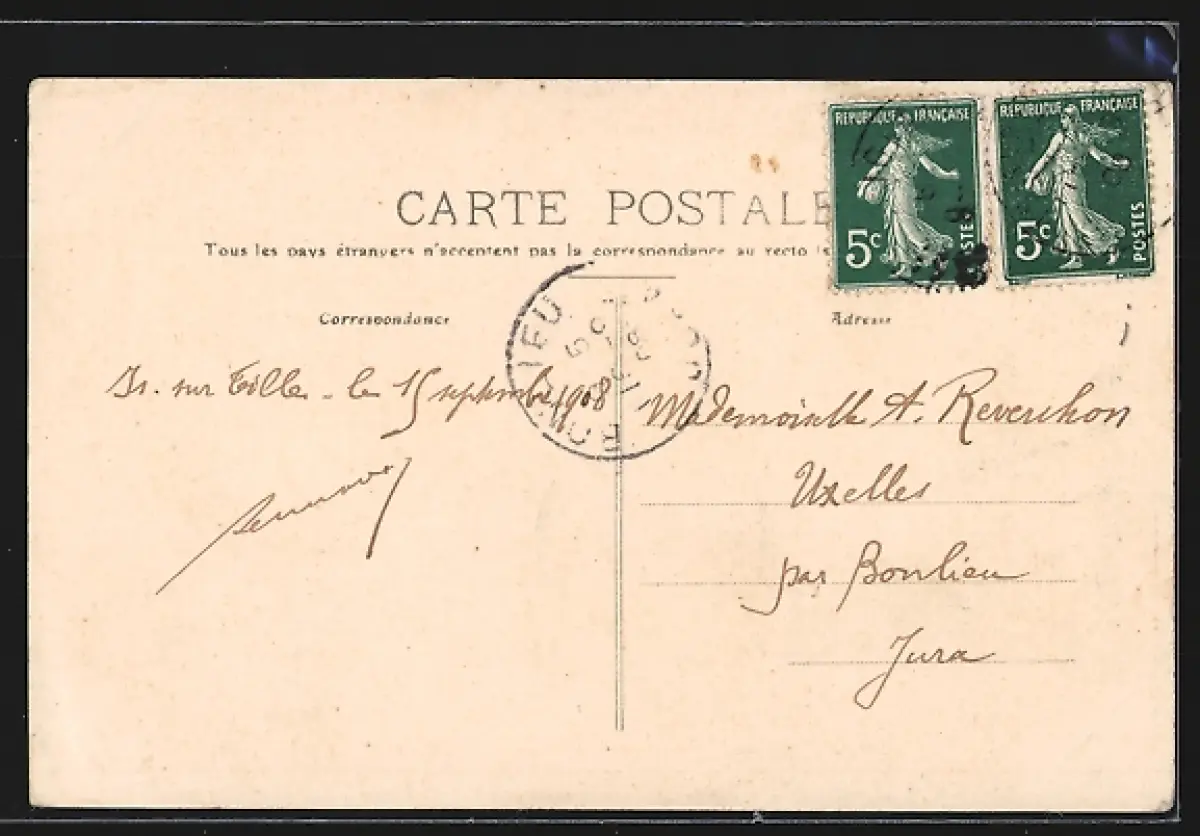 CARTE POSTALE
Tous les pays étrangers n'acceptent pas la correspondance au recto
Correspondance
Adresse
RÉPUBLIQUE FRANÇAISE
5c
POSTES
RÉPUBLIQUE FRANÇAISE
5c
POSTES
Is. sur Tille. le 15 septembre 1908
Mademoiselle A. Reverchon
Uxelles
par Bonlieu
Jura